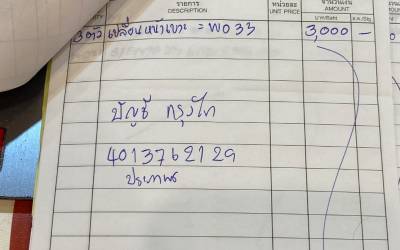 QUANTITY รายการ DESCRIPTION หน่วยละ UNIT PRICE จำนวนเงิน AMOUNT
บาท/Baht ส.ต./Stg.
3 ตัว เปลี่ยนหน้าเบาะ = W033 3,000 -
บัญชี กรุงไท
4013762129